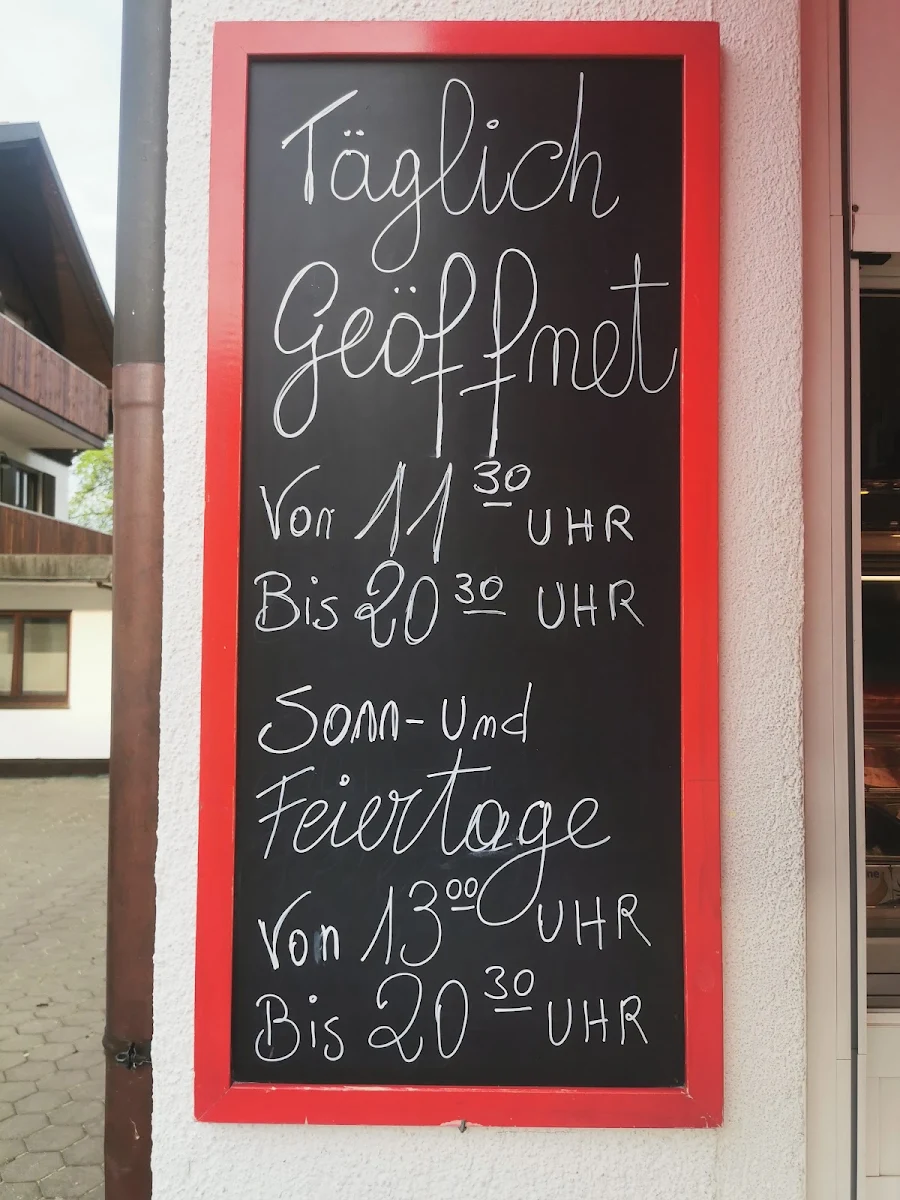 Täglich
Geöffnet
Von 11 30 UHR
Bis 20 30 UHR
Sonn- und
Feiertage
Von 13 00 UHR
Bis 20 30 UHR